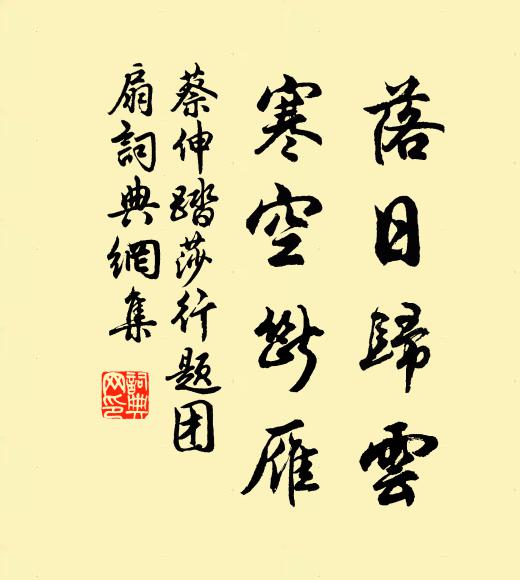 落日歸雲
寒空斷雁
蔡伸踏莎行题团
扇詞典網集
詞典网印